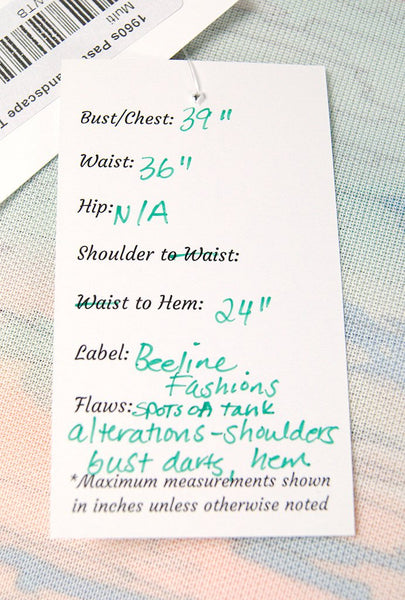 1960s Past
Multi
WTB
andscape T
Bust/Chest: 39"
Waist: 36"
Hip: N/A
Shoulder to Waist:
Waist to Hem: 24"
Label: Beeline
Fashions
Flaws: spots on tank
alterations-shoulders
bust darts, hem
*Maximum measurements shown
in inches unless otherwise noted